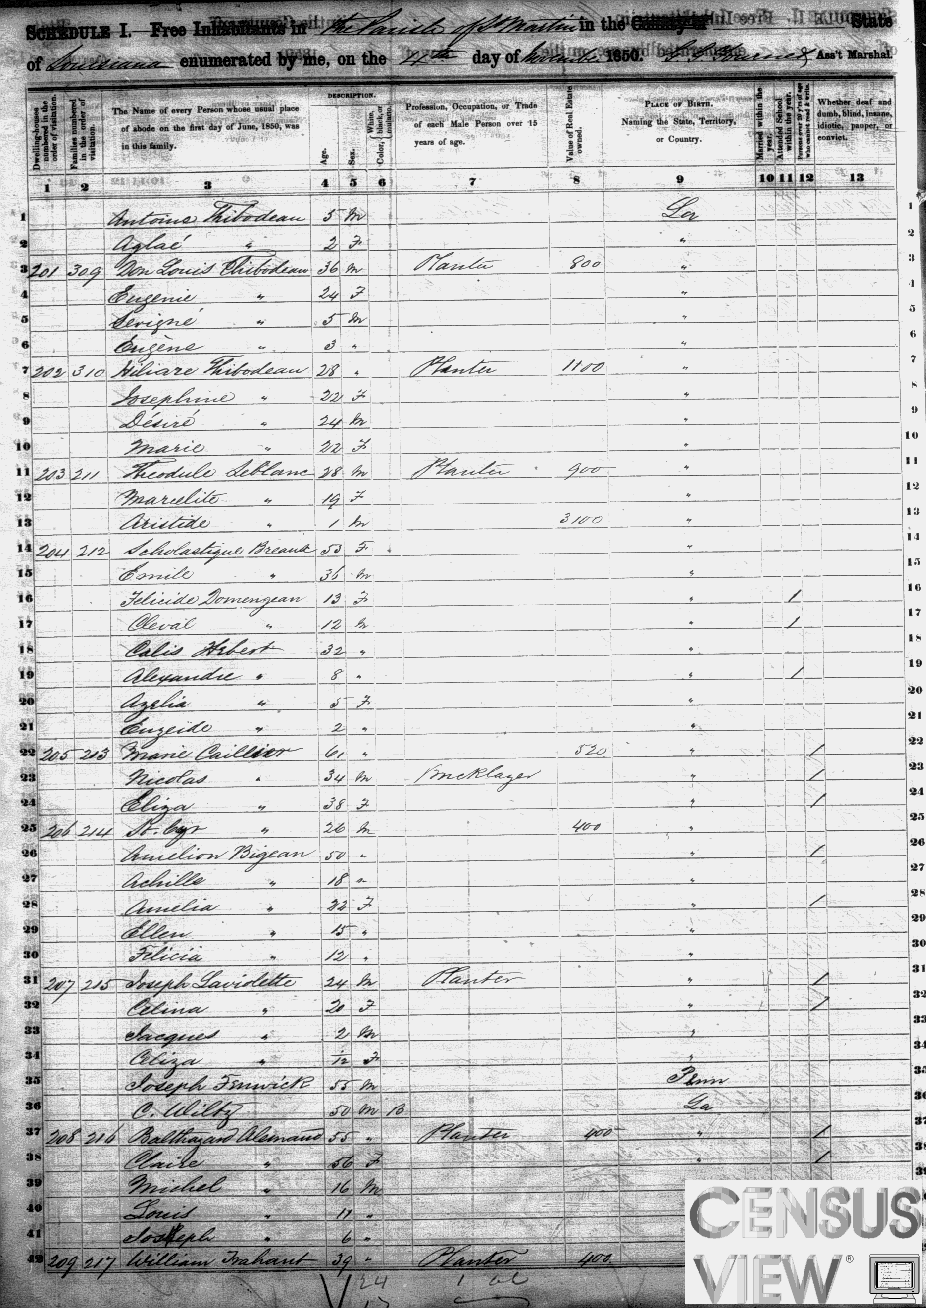 SCHEDULE I.—Free Inhabitants in the Parish of St Martin in the County of State
of Louisiana enumerated by me, on the 4th day of November 1850. Ass't Marshal.
Dwelling-house numbered in the order of visitation.
Families numbered in the order of visitation.
The Name of every Person whose usual place of abode on the first day of June, 1850, was in this family.
DESCRIPTION.
Age.
Sex.
Color, White, black, or mulatto.
Profession, Occupation, or Trade of each Male Person over 15 years of age.
Value of Real Estate owned.
PLACE OF BIRTH. Naming the State, Territory, or Country.
Married within the year.
Attended School within the year.
Persons over 20 years of age who cannot read & write.
Whether deaf and dumb, blind, insane, idiotic, pauper, or convict.
1 2 3 4 5 6 7 8 9 10 11 12 13
1 Antoine Thibodeau 5 M La 1
2 Aglaé " 2 F " 2
3 201 309 Don Louis Thibodeau 36 M Planter 800 " 3
4 Eugenie " 24 F " 4
5 Sevigné " 5 M " 5
6 Eugène " 3 " " 6
7 202 310 Hiliare Thibodeau 28 " Planter 1100 " 7
8 Josephine " 22 F " 8
9 Désiré " 24 M " 9
10 Marie " 22 F " 10
11 203 211 Theodule Leblanc 28 M Planter 900 " 11
12 Marcelite " 19 F " 12
13 Aristide " 1 M 3100 " 13
14 204 212 Scholastique Breaux 53 F " 14
15 Emile " 36 M " 15
16 Felicide Domengean 13 F " 1 16
17 Cleval " 12 M " 1 17
18 Calis Hebert 32 " " 18
19 Alexandre " 8 " " 1 19
20 Azelia " 5 F " 20
21 Euzeide " 2 " " 21
22 205 213 Marie Caillier 61 " 520 " 1 22
23 Nicolas " 34 M Bricklayer " 1 23
24 Eliza " 38 F " 1 24
25 206 214 St. Cyr " 26 M 400 " 25
26 Amelion Bigean 50 " " 1 26
27 Achille " 18 " " 27
28 Amelia " 22 F " 1 28
29 Ellen " 15 " " 29
30 Felicia " 12 " " 30
31 207 215 Joseph Laviolette 24 M Planter " 1 31
32 Celina " 20 F " 1 32
33 Jacques " 2 M " 33
34 Celiza " 1/12 F " 34
35 Joseph Fenwick 55 M Penn 35
36 C. Wiltz 50 M B La 36
37 208 216 Balthazard Alemand 55 " Planter 400 " 1 37
38 Claire " 56 F " 1 38
39 Michel " 16 M 39
40 Louis " 11 "
41 Joseph " 6 "
42 209 217 William Trahant 39 " Planter 400
24
CENSUS
VIEW®